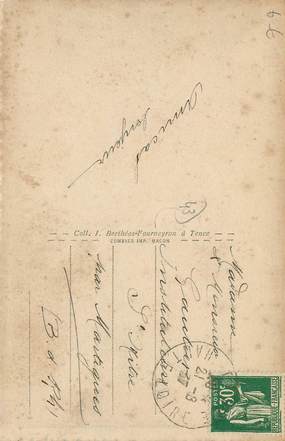 Amical
bonjour
Coll. J. Berthéas-Fourneyron à Tence
COMBIER IMP. MACON
43
Madame
& Monsieur
Gautier
Instituteurs
St Mitre
par Martigues
(B. d. R.)
30
POSTES
REPUBLIQUE FRANÇAISE